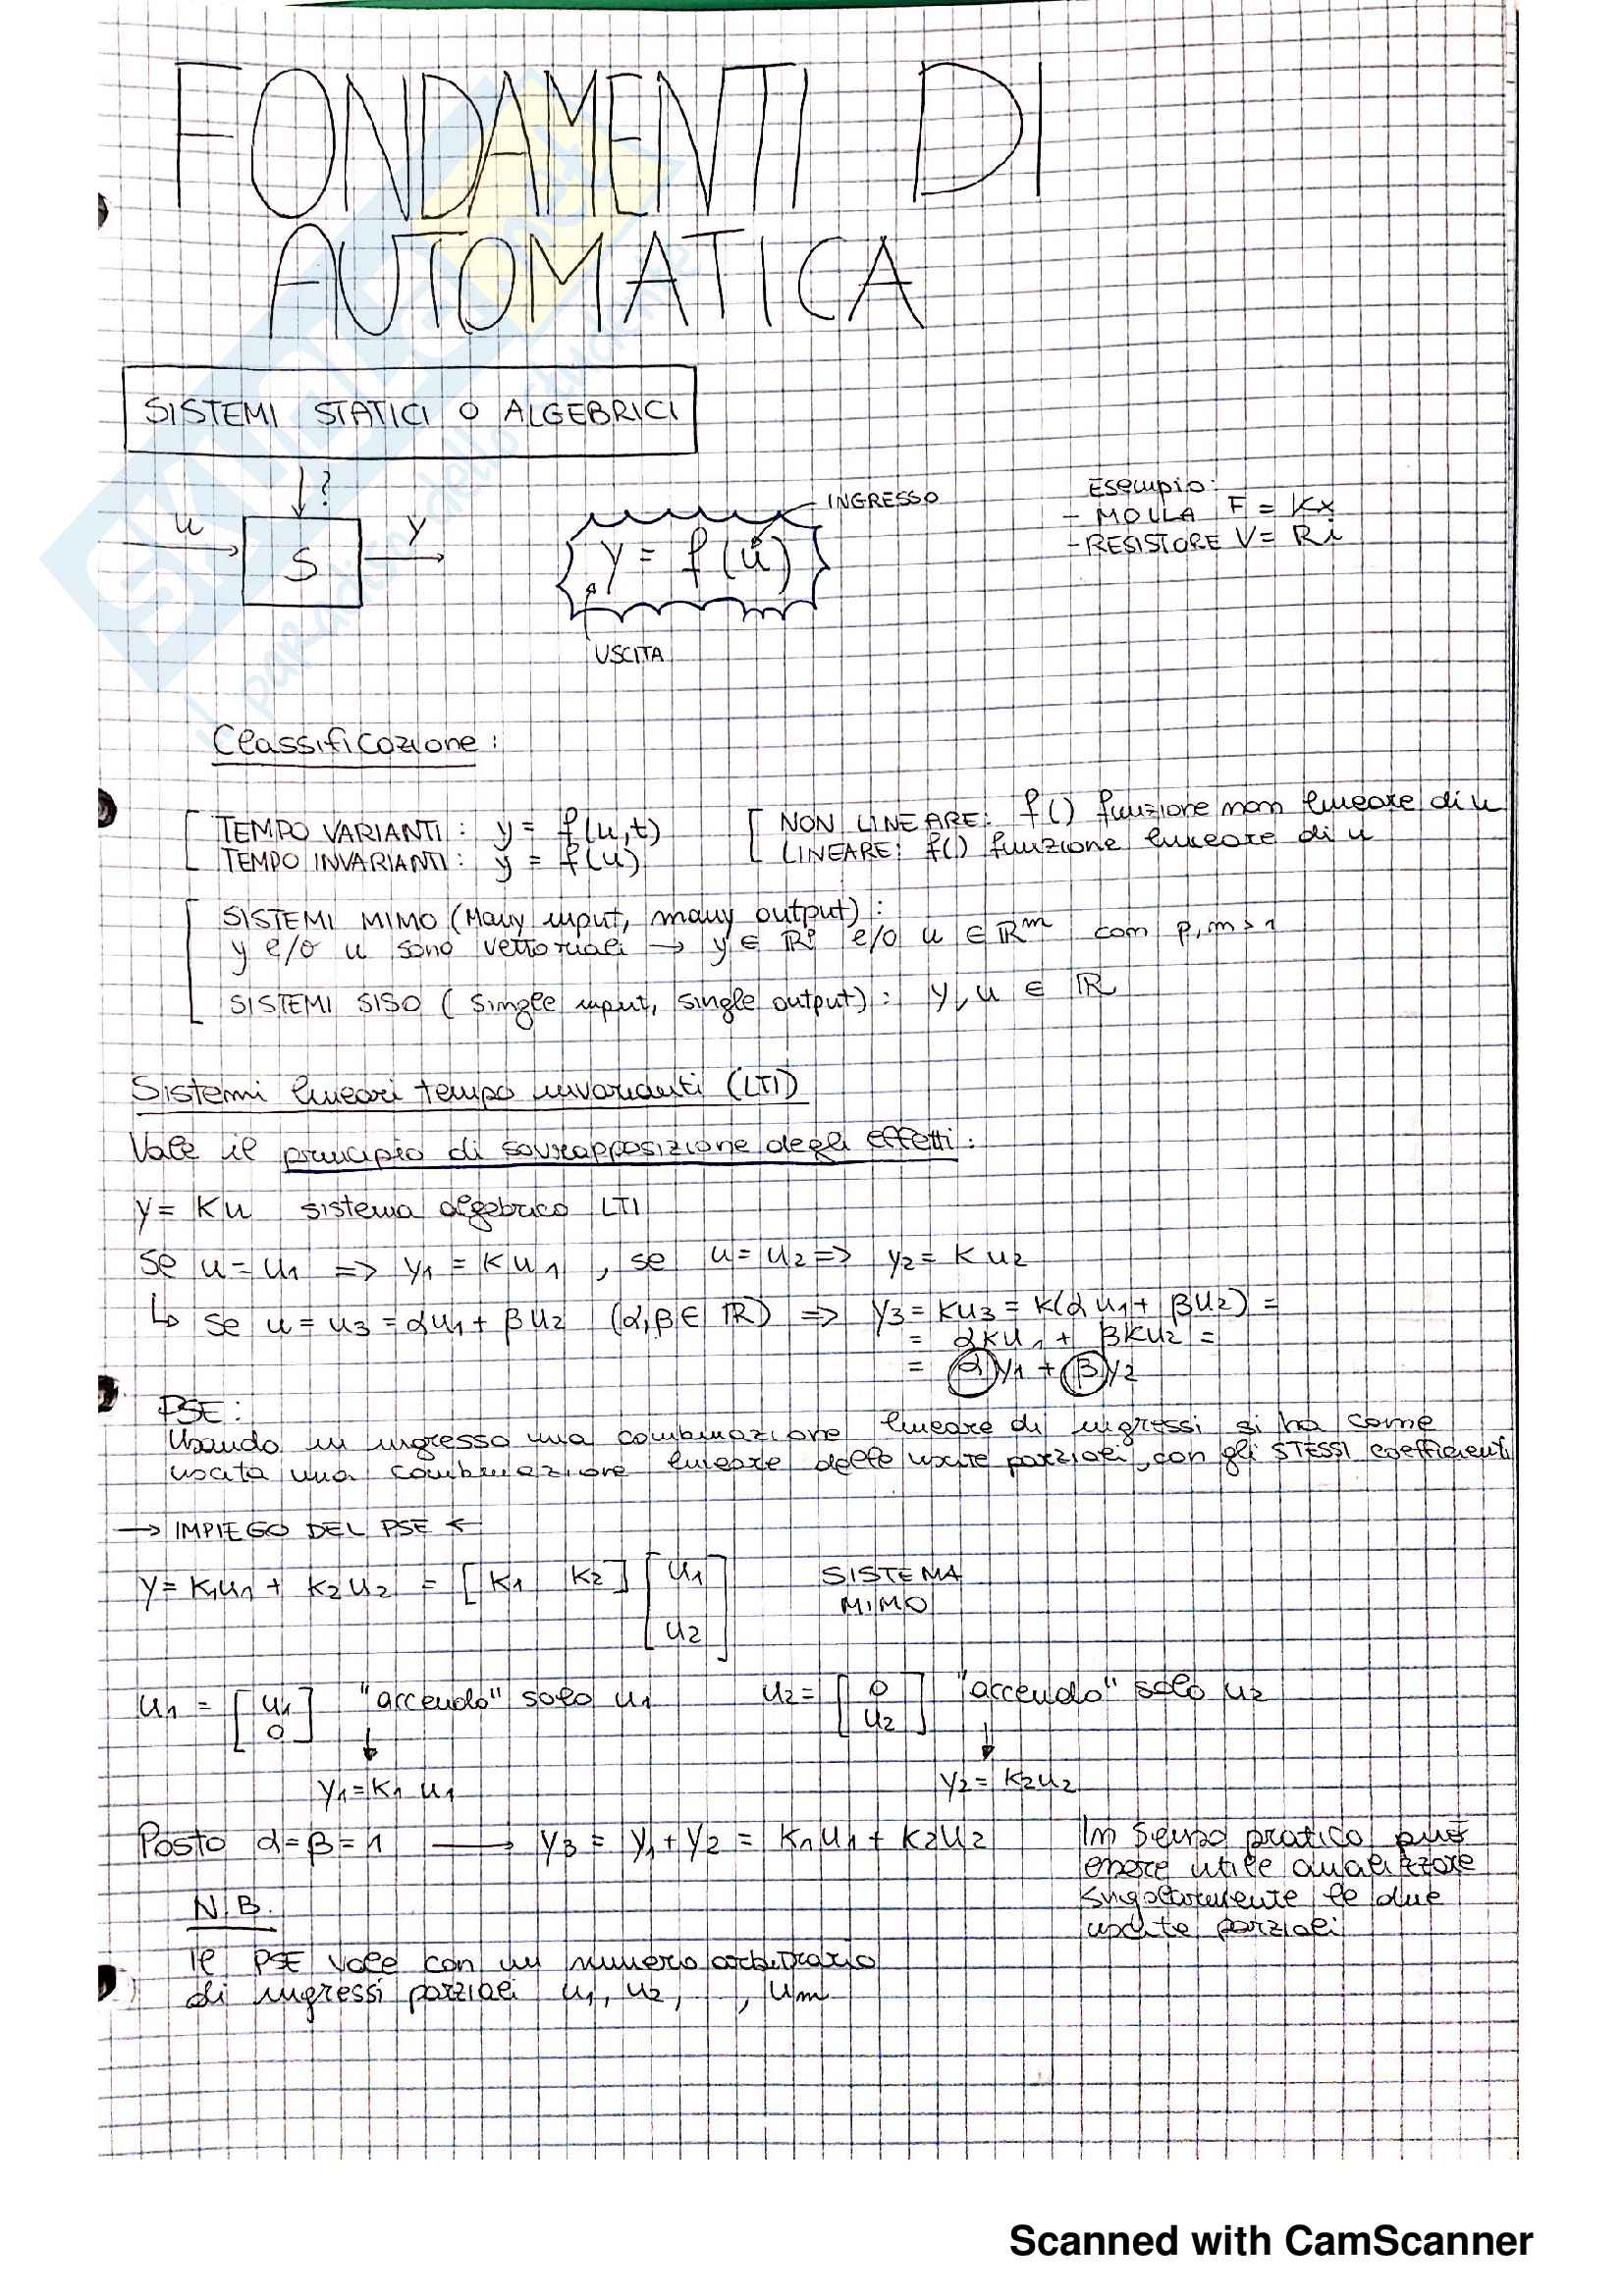 FONDAMENTI DI
AUTOMATICA
SISTEMI STATICI O ALGEBRICI
?
u
S
y
y = f(u)
INGRESSO
USCITA
Esempio:
- MOLLA F = Kx
- RESISTORE V = Ri
Classificazione:
TEMPO VARIANTI: y = f(u,t)
TEMPO INVARIANTI: y = f(u)
NON LINEARE: f() funzione non lineare di u
LINEARE: f() funzione lineare di u
SISTEMI MIMO (Many input, many output):
y e/o u sono vettoriali → y ∈ ℝᵖ e/o u ∈ ℝᵐ con p,m > 1
SISTEMI SISO (single input, single output): y, u ∈ ℝ
Sistemi lineari tempo invarianti (LTI)
Vale il principio di sovrapposizione degli effetti:
y = Ku sistema algebrico LTI
se u = u₁ => y₁ = Ku₁, se u = u₂ => y₂ = Ku₂
↳ se u = u₃ = αu₁ + βu₂ (α,β ∈ ℝ) => y₃ = Ku₃ = K(αu₁ + βu₂) =
= αKu₁ + βKu₂ =
= αy₁ + βy₂
PSE:
Usando in ingresso una combinazione lineare di ingressi si ha come
uscita una combinazione lineare delle uscite parziali, con gli STESSI coefficienti
→ IMPIEGO DEL PSE ←
y = K₁u₁ + K₂u₂ = [K₁ K₂] [u₁ u₂]
SISTEMA
MIMO
u₁ = [u₁ 0] "accendo" solo u₁
u₂ = [0 u₂] "accendo" solo u₂
y₁ = K₁u₁
y₂ = K₂u₂
Posto α = β = 1 → y₃ = y₁ + y₂ = K₁u₁ + K₂u₂
In senso pratico può
essere utile analizzare
singolarmente le due
uscite parziali
N.B.
Il PSE vale con un numero arbitrario
di ingressi parziali u₁, u₂, , um
Scanned with CamScanner